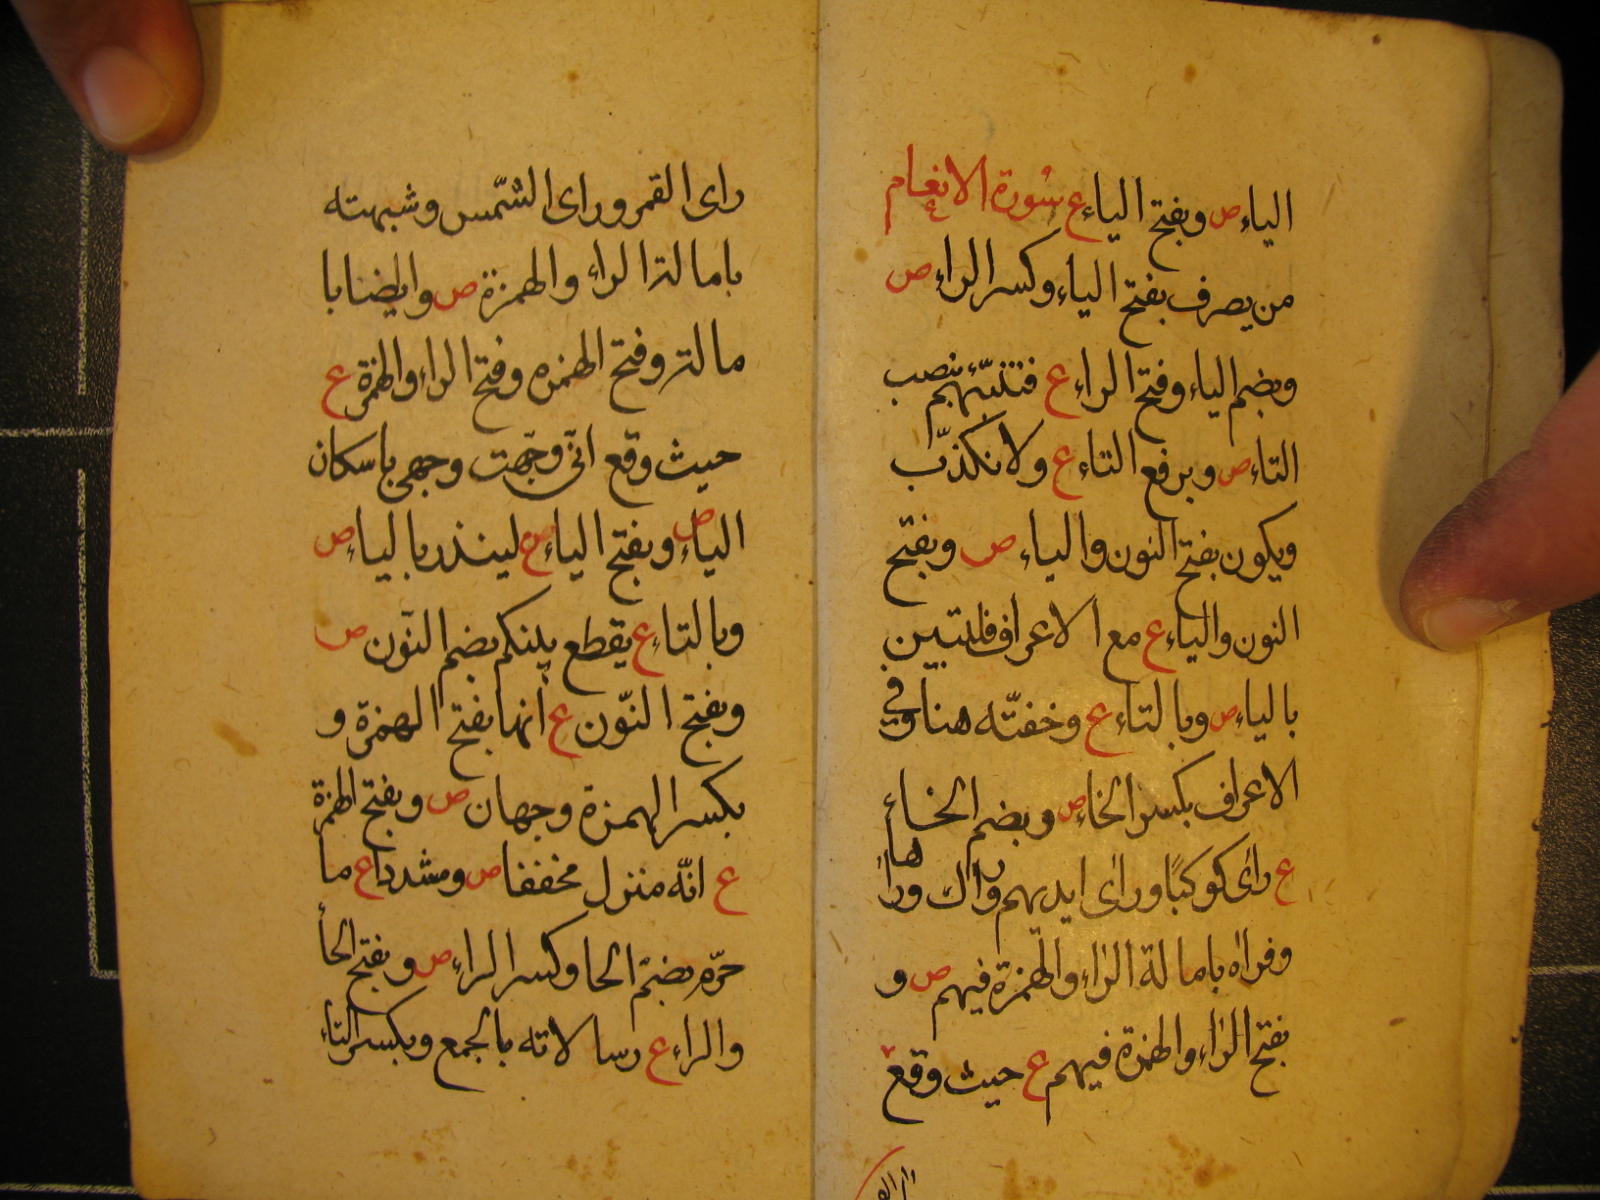 الياء ص وبفتح الياء ع سورة الانعام
من يصرف بفتح الياء وكسر الراء ص
وبضم الياء وفتح الراء ع فتنتهم بنصب
التاء ص وبرفع التاء ع ولا نكذّب
ويكون بفتح النون والياء ص وبفتح
النون والياء ع مع الاعراف
بالياء ص وبالتاء ع وخفيّه هنا وفي
الاعراف بكسر الخاء ص وبضم الخاء
ع رأى كوكبًا ورأى ايديهم وراك وراها
وفراه بامالة الراء والهمزة فيهم ص و
بفتح الراء والهمزة فيهم ع حيث وقع
راى القمر وراى الشّمس وشبهته
بامالتر الراء والهمزة ص وايضا با
مالتر وفتح الهمزه وفتح الراء والهمزة ع
حيث وقع انّى وجّهت وجهى باسكان
الياء ص وبفتح الياء ع لينذر بالياء ص
وبالتاء ع يقطع بينكم بضم النّون ص
وبفتح النّون ع انها بفتح الهمزة و
بكسر الهمزة وجهان ص وبفتح الهمزة
ع انّه منزل مخففا ص ومشددا ع ما
حرّم بضمّ الحا وكسر الراء ص وبفتح الحأ
والراء ع رسالاته بالجمع وبكسر التاء